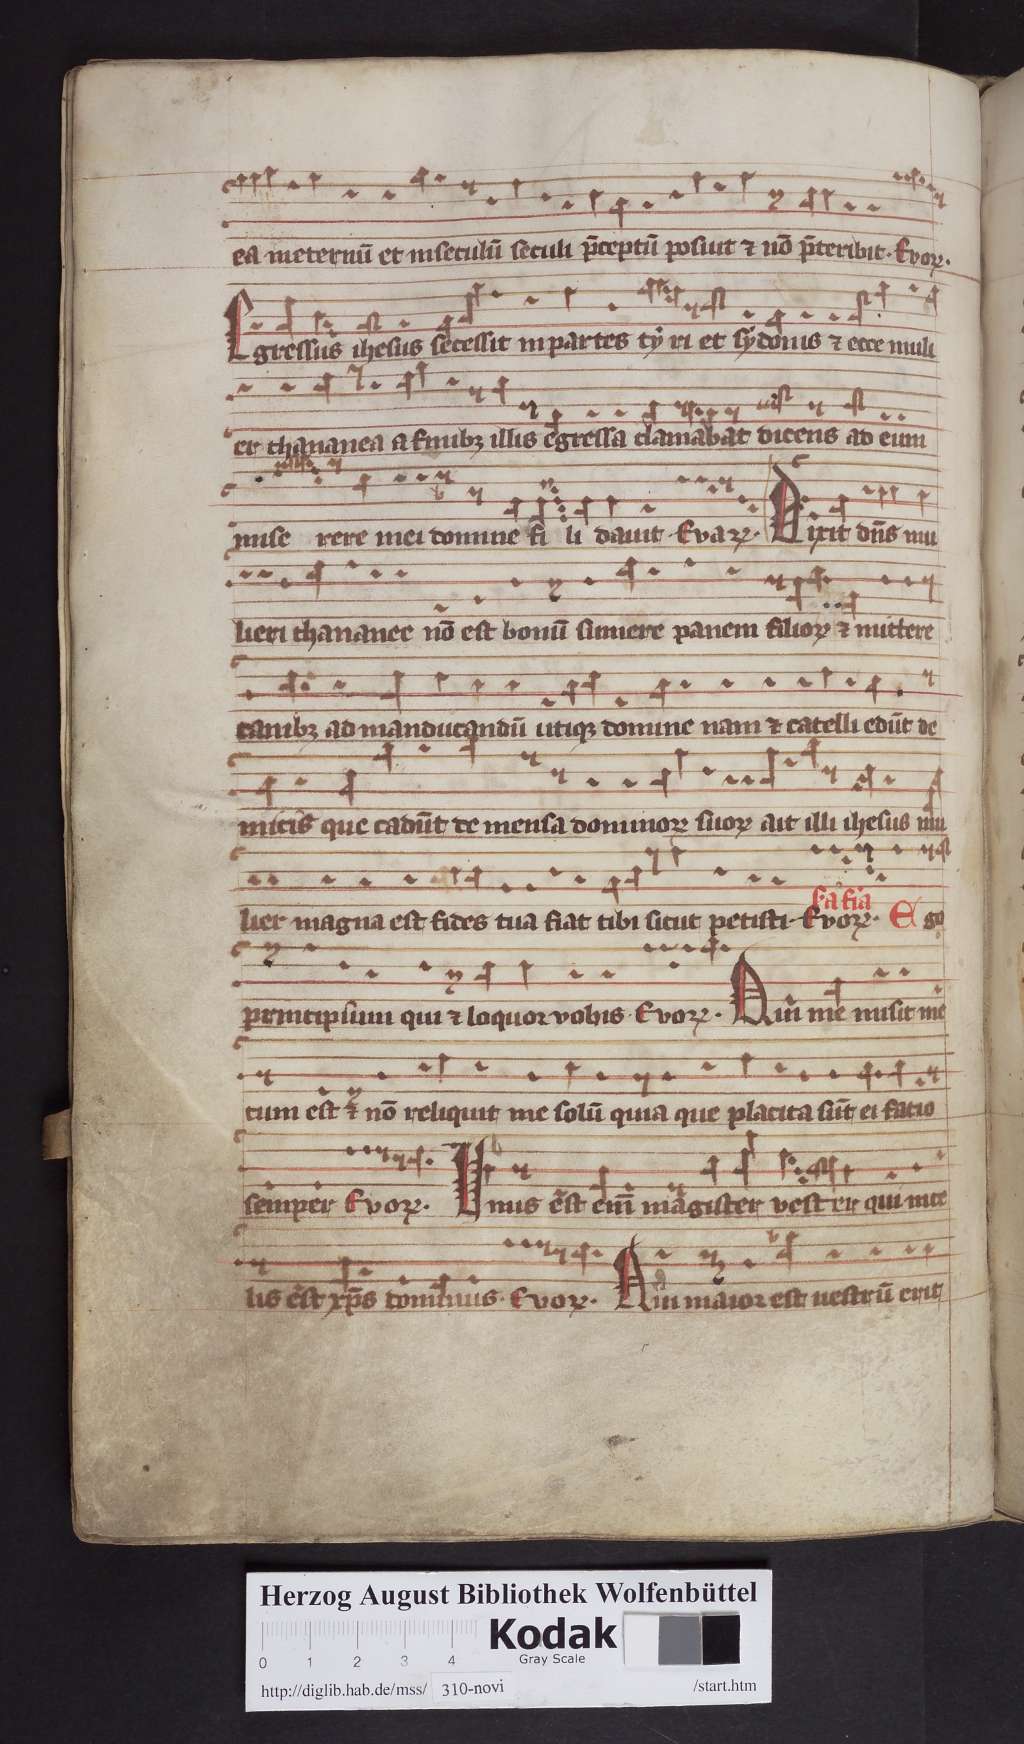 ea ineternū et inseculū seculi p̄ceptū posuit ⁊ nō p̄teribit. Evoꝝ.
Egressus ihesus secessit in partes tẏri et sẏdonis ⁊ ecce muli
er chananea a finibꝫ illis egressa clamabat dicens ad eum
mise rere mei domine fi li dauit Evaꝝ. Dixit dn̄s mu
lieri chananee nō est bonū sumere panem filioꝝ ⁊ mittere
canibꝫ ad manducandū utiqꝫ domine nam ⁊ catelli edūt de
micis que cadūt de mensa dominoꝝ suoꝝ ait illi ihesus mu
lier magna est fides tua fiat tibi sicut petisti. Evoꝝ. Ego
principium qui ⁊ loquor vobis. Evoꝝ. Qui me misit me
cum est ⁊ nō reliquit me solū quia que placita sūt ei facio
semper Evoꝝ. Unus est enī magister vester qui ince
lis est xp̄s dominus. Evoꝝ. Qui maior est uestrū erit
Herzog August Bibliothek Wolfenbüttel
Kodak
Gray Scale
0 1 2 3 4
http://diglib.hab.de/mss/ 310-novi /start.htm